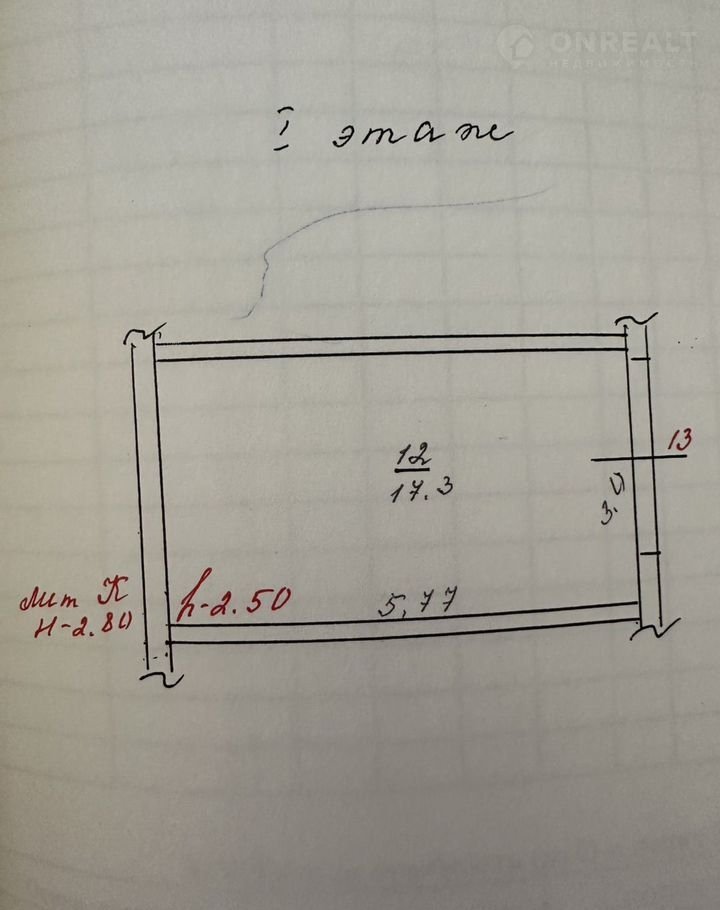 ONREALT
НЕДВИЖИМОСТЬ
I этаж
13
12
17.3
3.0
лит К
Н-2.80
h-2.50
5,77